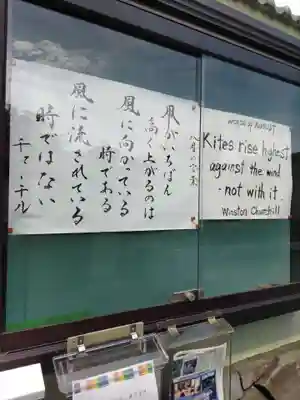 八月の言葉
凧がいちばん
高く上がるのは
風に向かっている
時である
風に流されている
時ではない
チャーチル
WORDS of AUGUST
Kites rise highest
against the wind
- not with it.
Winston Churchill